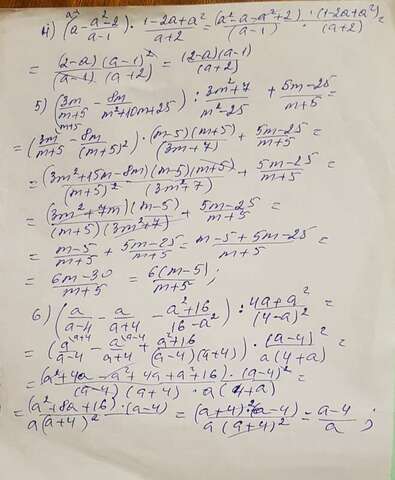 4) (a - (a²-2)/(a-1)) · (1-2a+a²)/(a+2) = (a²-a-a²+2)/(a-1) · (1-2a+a²)/(a+2) =
= (2-a)(a-1)²/((a-1)(a+2)) = (2-a)(a-1)/(a+2)
5) (3m/(m+5) - 8m/(m²+10m+25)) : (3m²+7)/(m²-25) + (5m-25)/(m+5) =
= (3m/(m+5) - 8m/(m+5)²) · (m-5)(m+5)/(3m+7) + (5m-25)/(m+5) =
= (3m²+15m-8m)(m-5)(m+5)/((m+5)²(3m²+7)) + (5m-25)/(m+5) =
= (3m²+7m)(m-5)/((m+5)(3m²+7)) + (5m-25)/(m+5) =
= (m-5)/(m+5) + (5m-25)/(m+5) = (m-5+5m-25)/(m+5) =
= (6m-30)/(m+5) = 6(m-5)/(m+5) ;
6) (a/(a-4) - a/(a+4) - (a²+16)/(16-a²)) : (4a+a²)/(4-a)² =
= (a/(a-4) - a/(a+4) + (a²+16)/((a-4)(a+4))) · (a-4)²/(a(4+a)) =
= (a²+4a-a²+4a+a²+16)·(a-4)²/((a-4)(a+4)·a(4+a)) =
= (a²+8a+16)·(a-4)/(a(a+4)²) = (a+4)²(a-4)/(a(a+4)²) = (a-4)/a ;